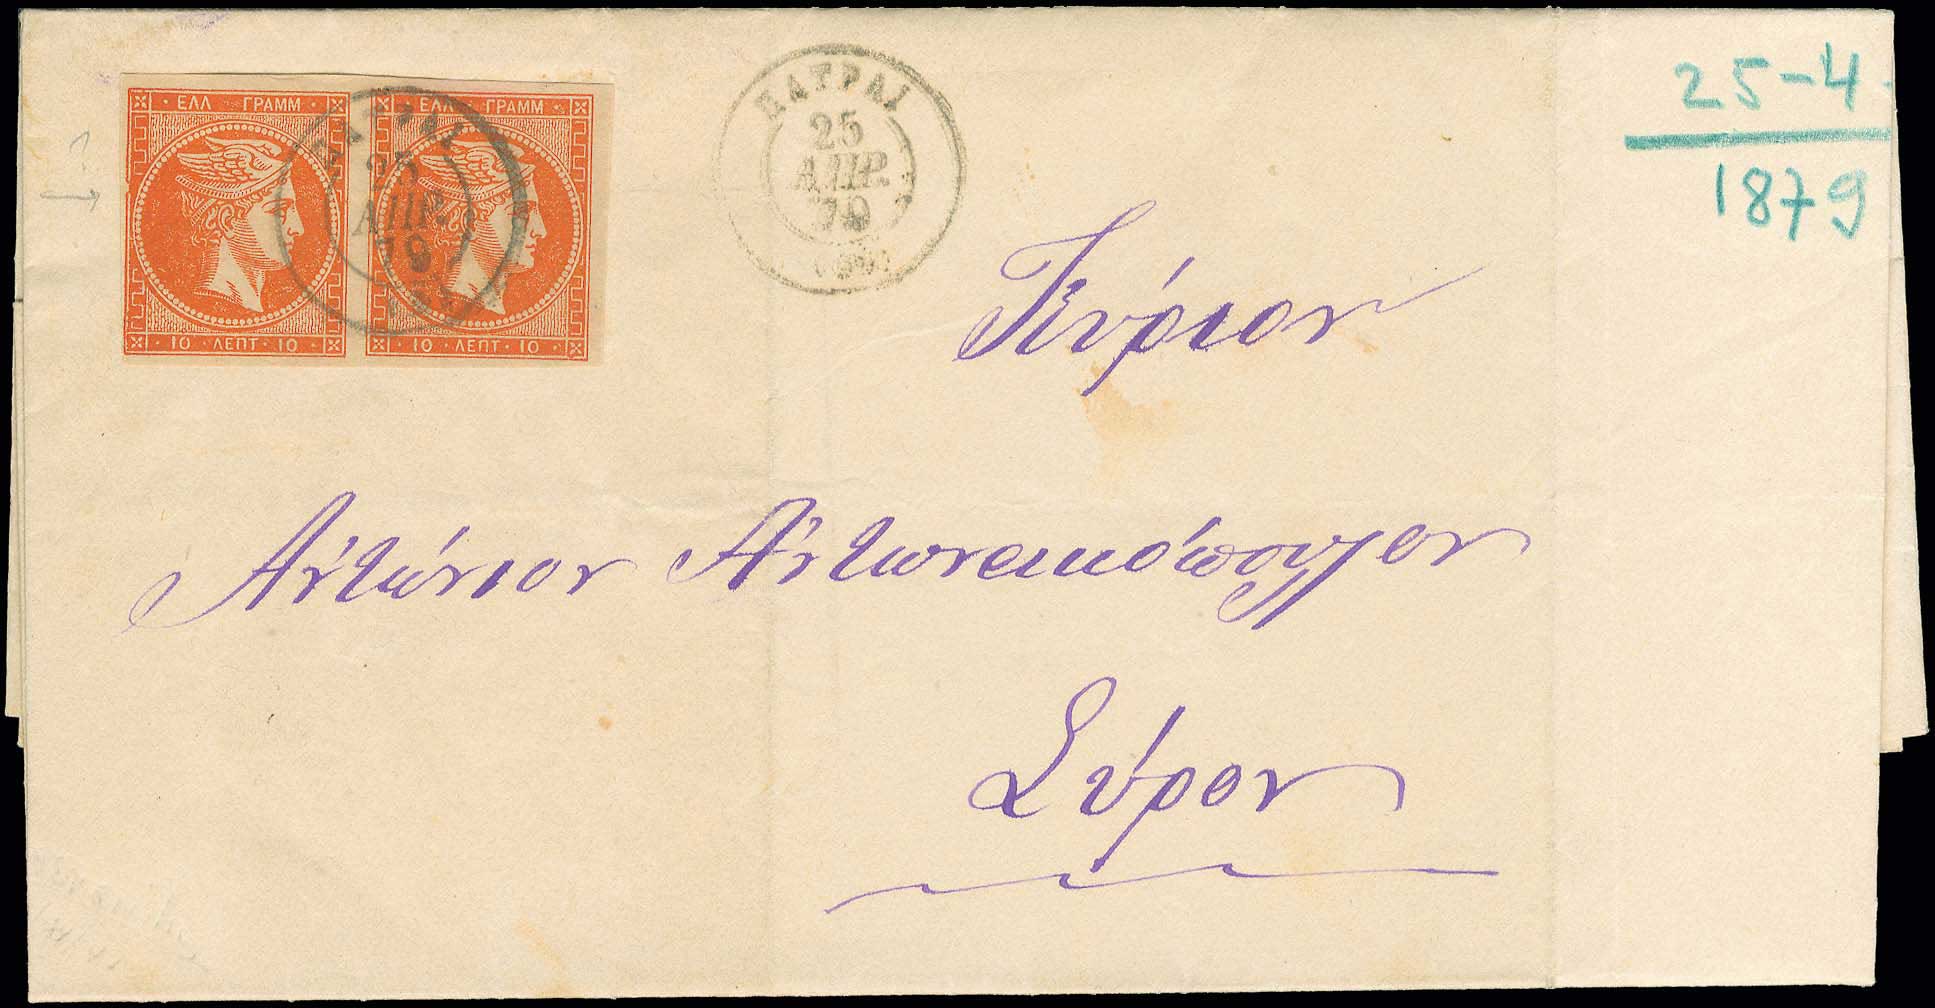 ΕΛΛ ΓΡΑΜΜ
10 ΛΕΠΤ 10
ΕΛΛ ΓΡΑΜΜ
10 ΛΕΠΤ 10
ΠΑΤΡΑΙ
25
ΑΠΡ.
79
ΠΑΤΡΑΙ
25
ΑΠΡ.
79
25-4-
1879
Κύριον
Ἀντώνιον Ἀντωνικόπουλον
Σύρον